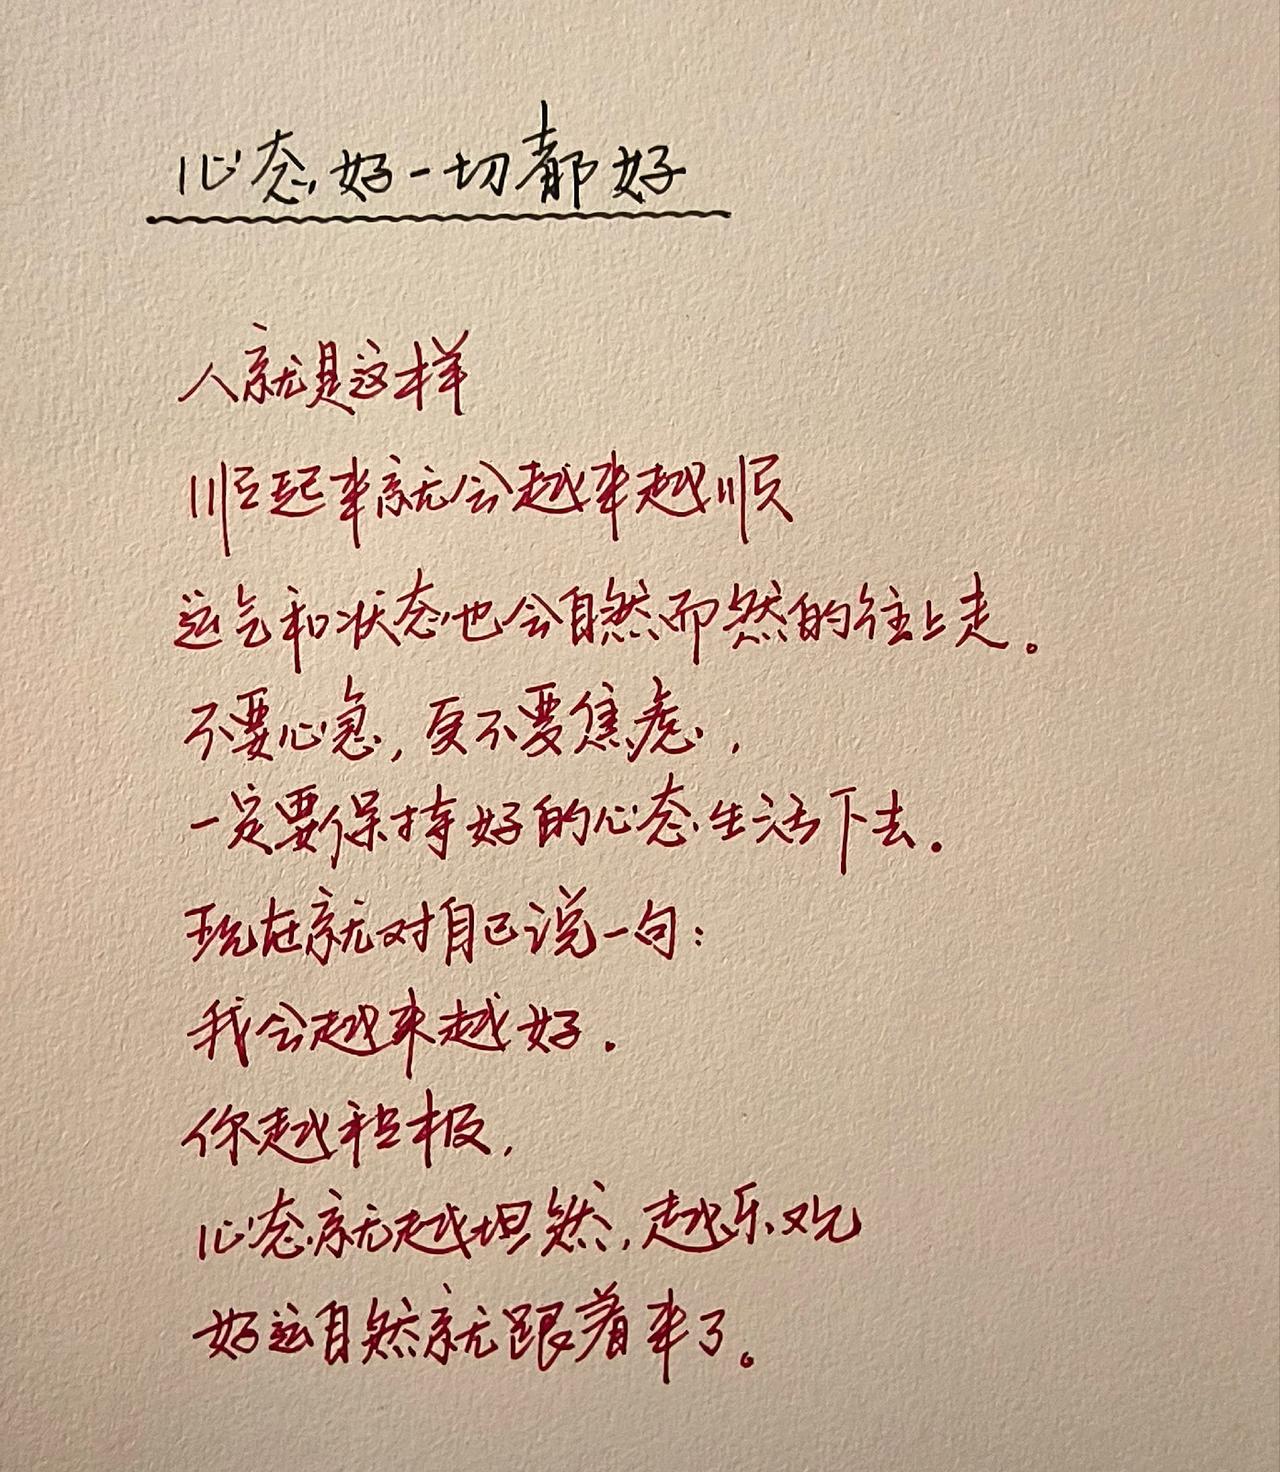 心态好一切都好
人就是这样
顺起来就会越来越顺
运气和状态也会自然而然的往上走。
不要心急，更不要焦虑，
一定要保持好的心态生活下去.
现在就对自己说一句：
我会越来越好.
你越积极，
心态就越坦然，越乐观
好运自然就跟着来了。